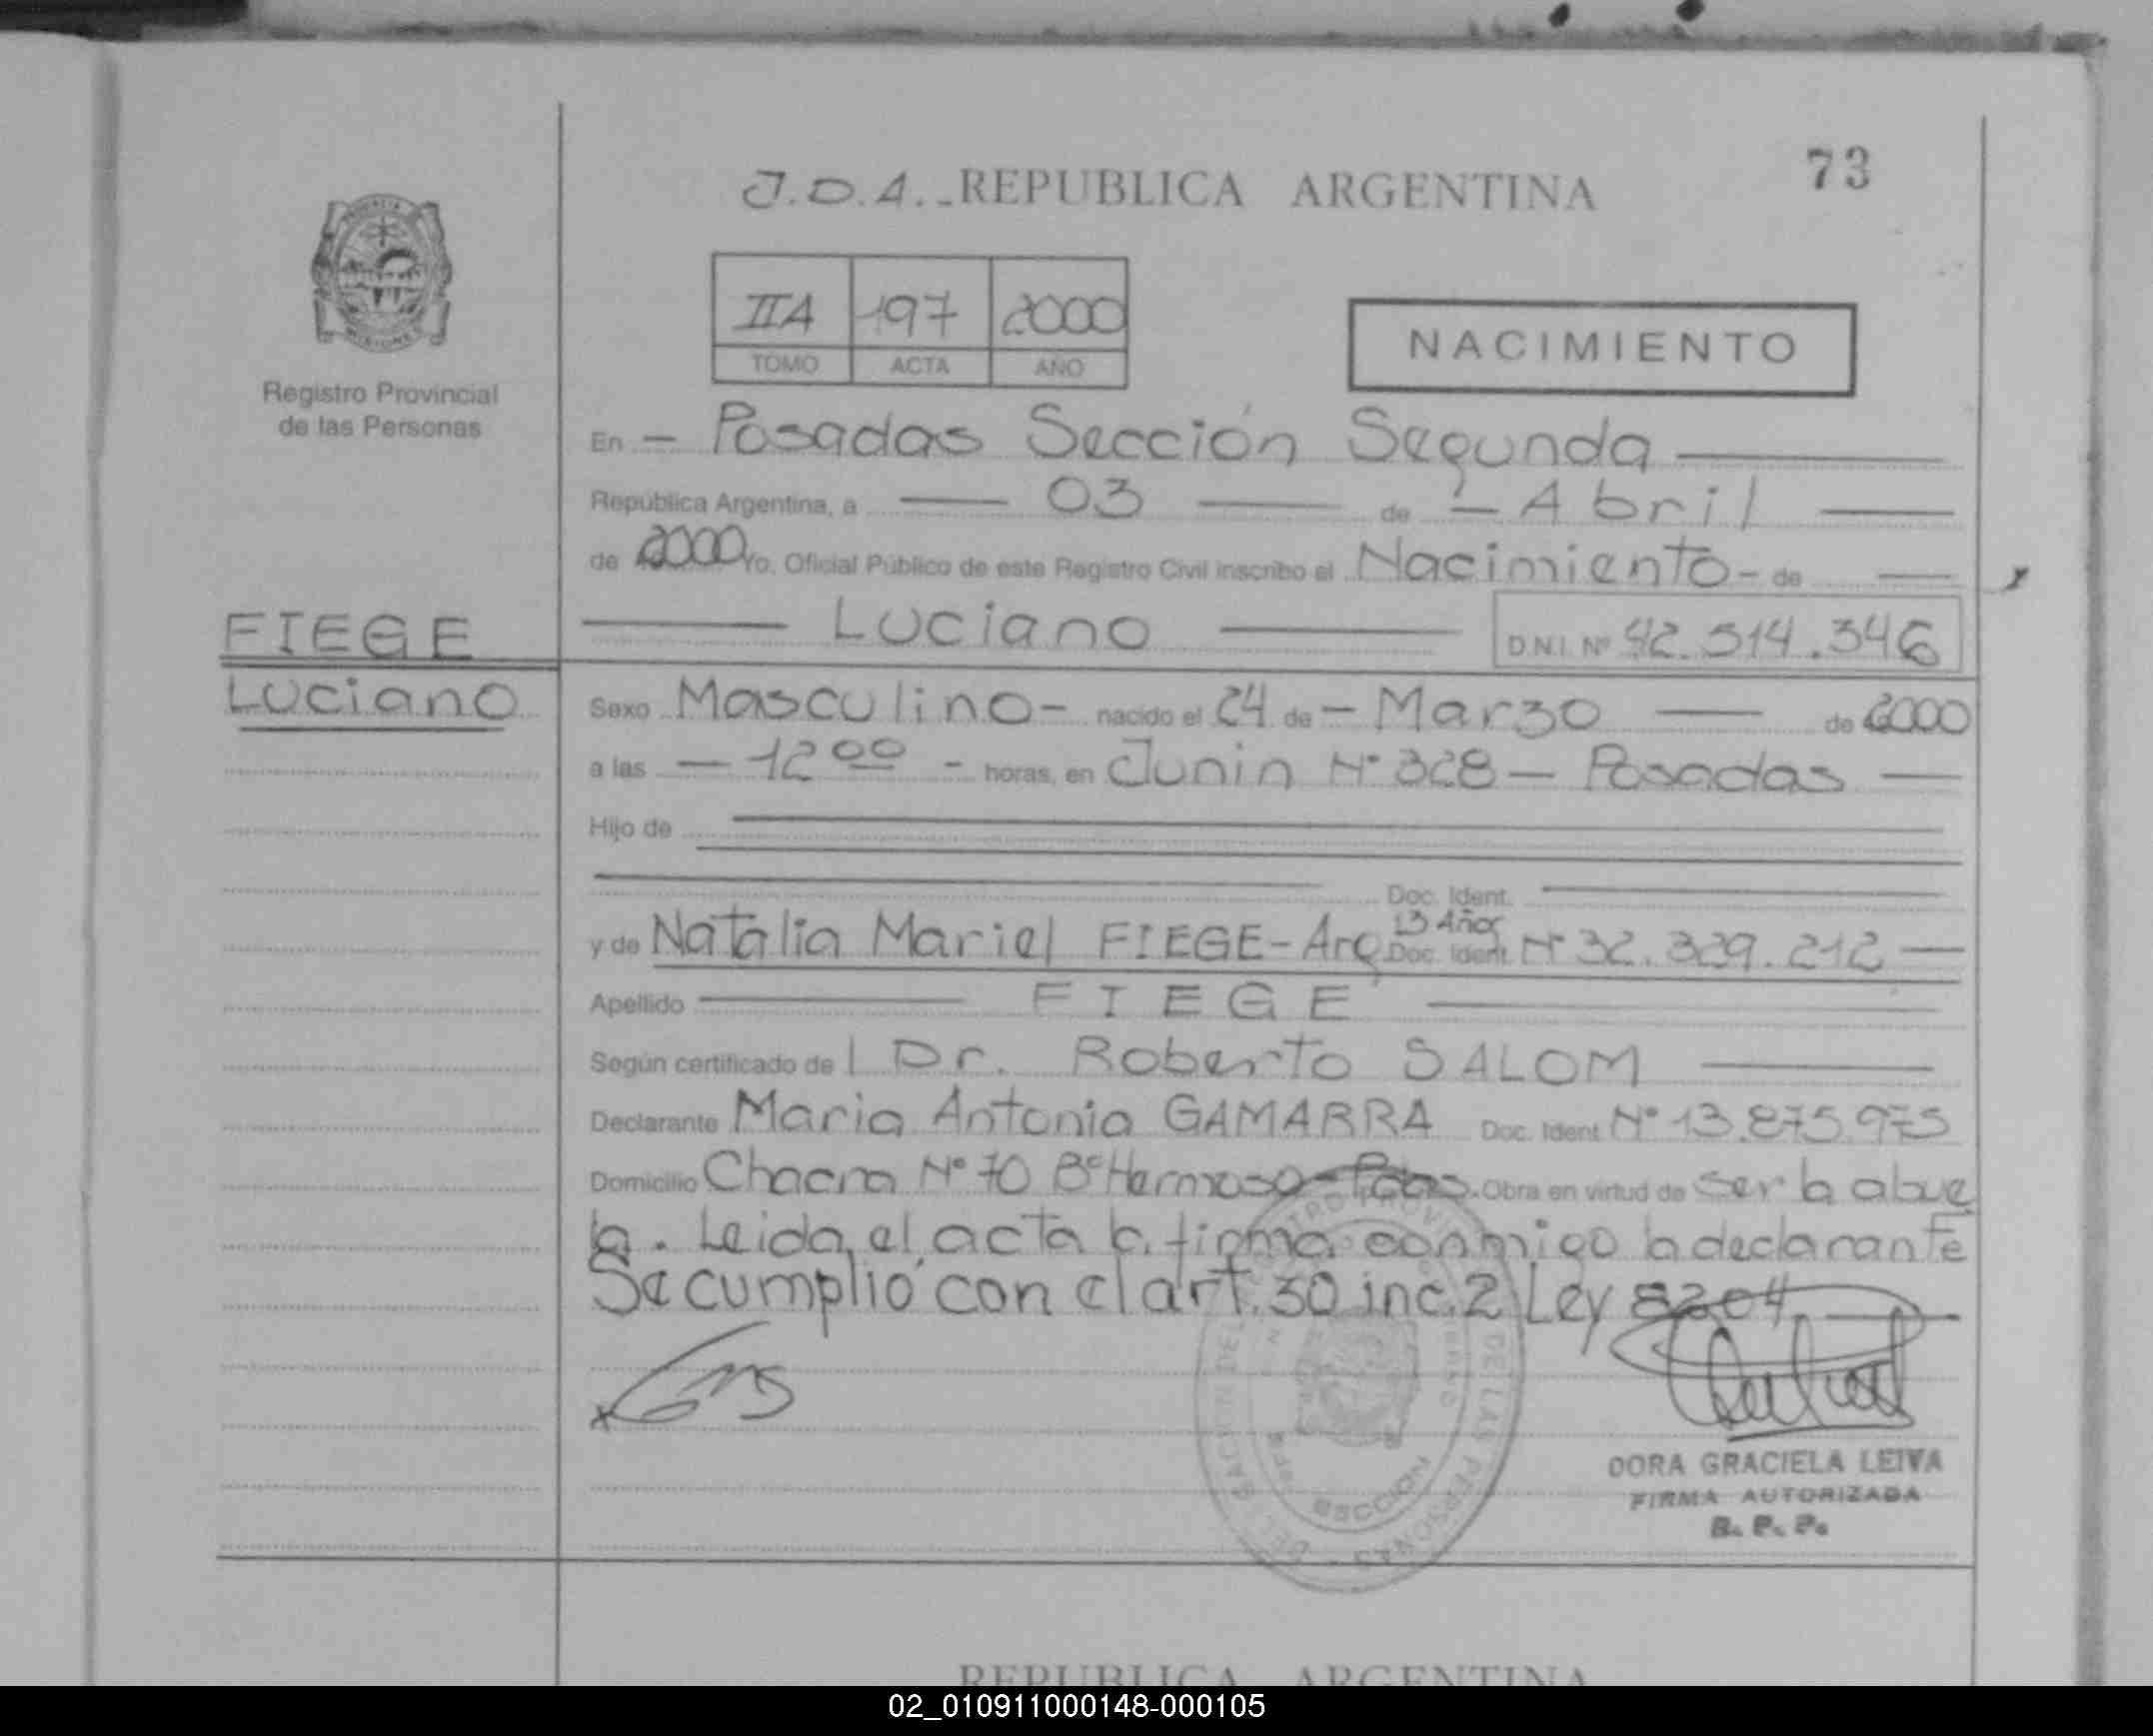 73
J.D.A. REPUBLICA ARGENTINA
IIA 197 2000
TOMO ACTA AÑO
NACIMIENTO
Registro Provincial
de las Personas
En — Posadas Sección Segunda —
República Argentina, a — 03 — de — Abril —
de 2000 Yo, Oficial Público de este Registro Civil inscribo el Nacimiento - de —
— Luciano — D.N.I. Nº 42.314.346
FIEGE
Luciano
Sexo Masculino - nacido el 24 de - Marzo — de 2000
a las — 12 00 - horas, en Junin Nº 328 — Posadas —
Hijo de
Doc. Ident.
13 Años
y de Natalia Mariel FIEGE - Arg Doc. Ident. Nº 32.329.212 —
Apellido — FIEGE —
Según certificado de l Dr. Roberto SALOM —
Declarante Maria Antonia GAMARRA Doc. Ident Nº 13.875.975
Domicilio Chacra Nº 70 Bº Hermoso - Pdas. Obra en virtud de ser la abue
la. Leida el acta la firma conmigo la declarante
Se cumplió con el art. 30 inc. 2 Ley 8204. —
DORA GRACIELA LEIVA
FIRMA AUTORIZADA
R. P. P.
REPUBLICA ARGENTINA
02_010911000148-000105